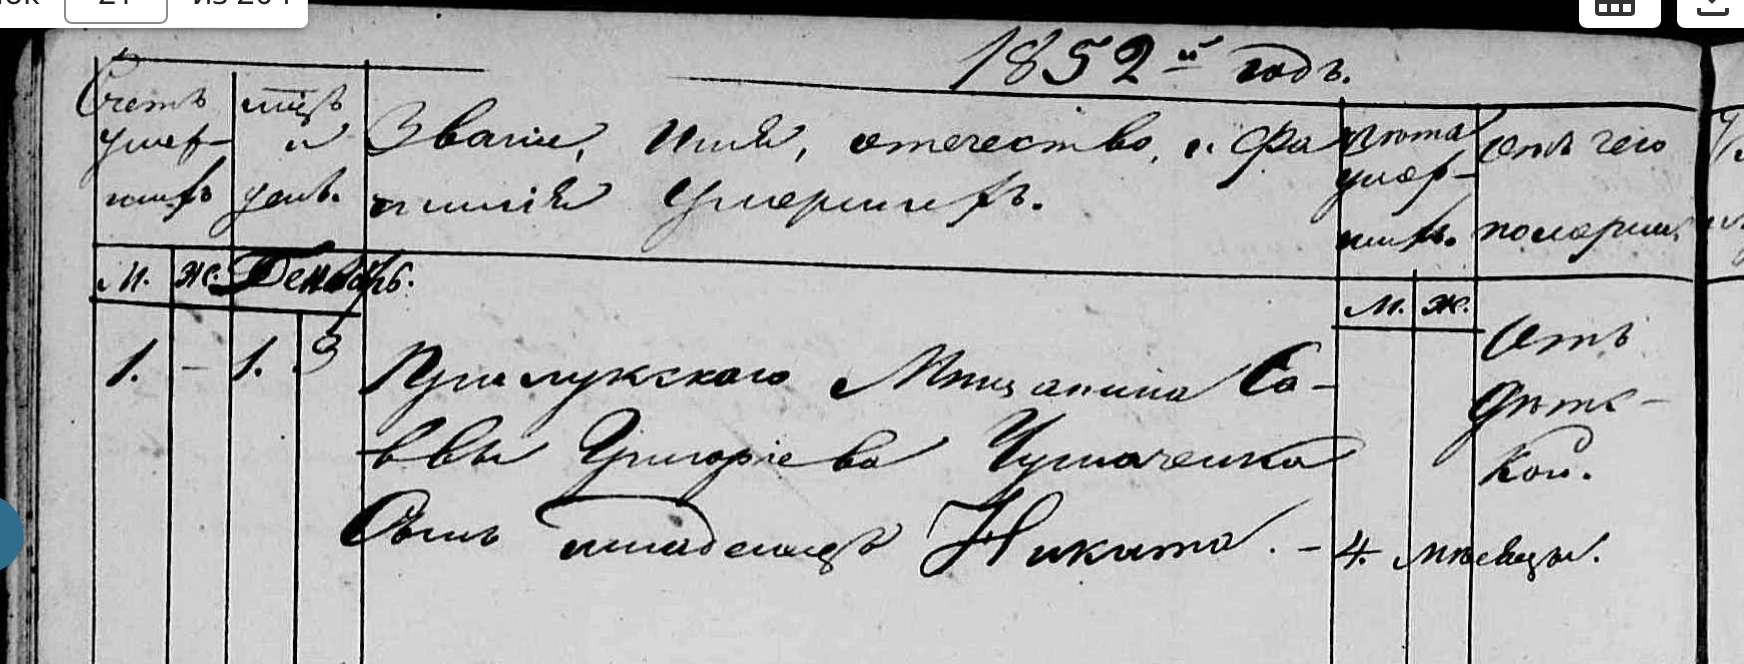 21 из 204
1852й годъ.
Счетъ умер- шихъ
мцъ и день.
Званіе, имя, отечество, и фа
милія умершихъ.
лѣта умер- шихъ.
отъ чего
померли
м. ж. Генварь.
м. ж.
1. – 1. 3
Прилукскаго Мѣщанина Са-
ввы Григоріева Чумаченка
Сынъ младенецъ Никита. – 4 мѣсяцы.
Отъ
дѣтс-
кой.